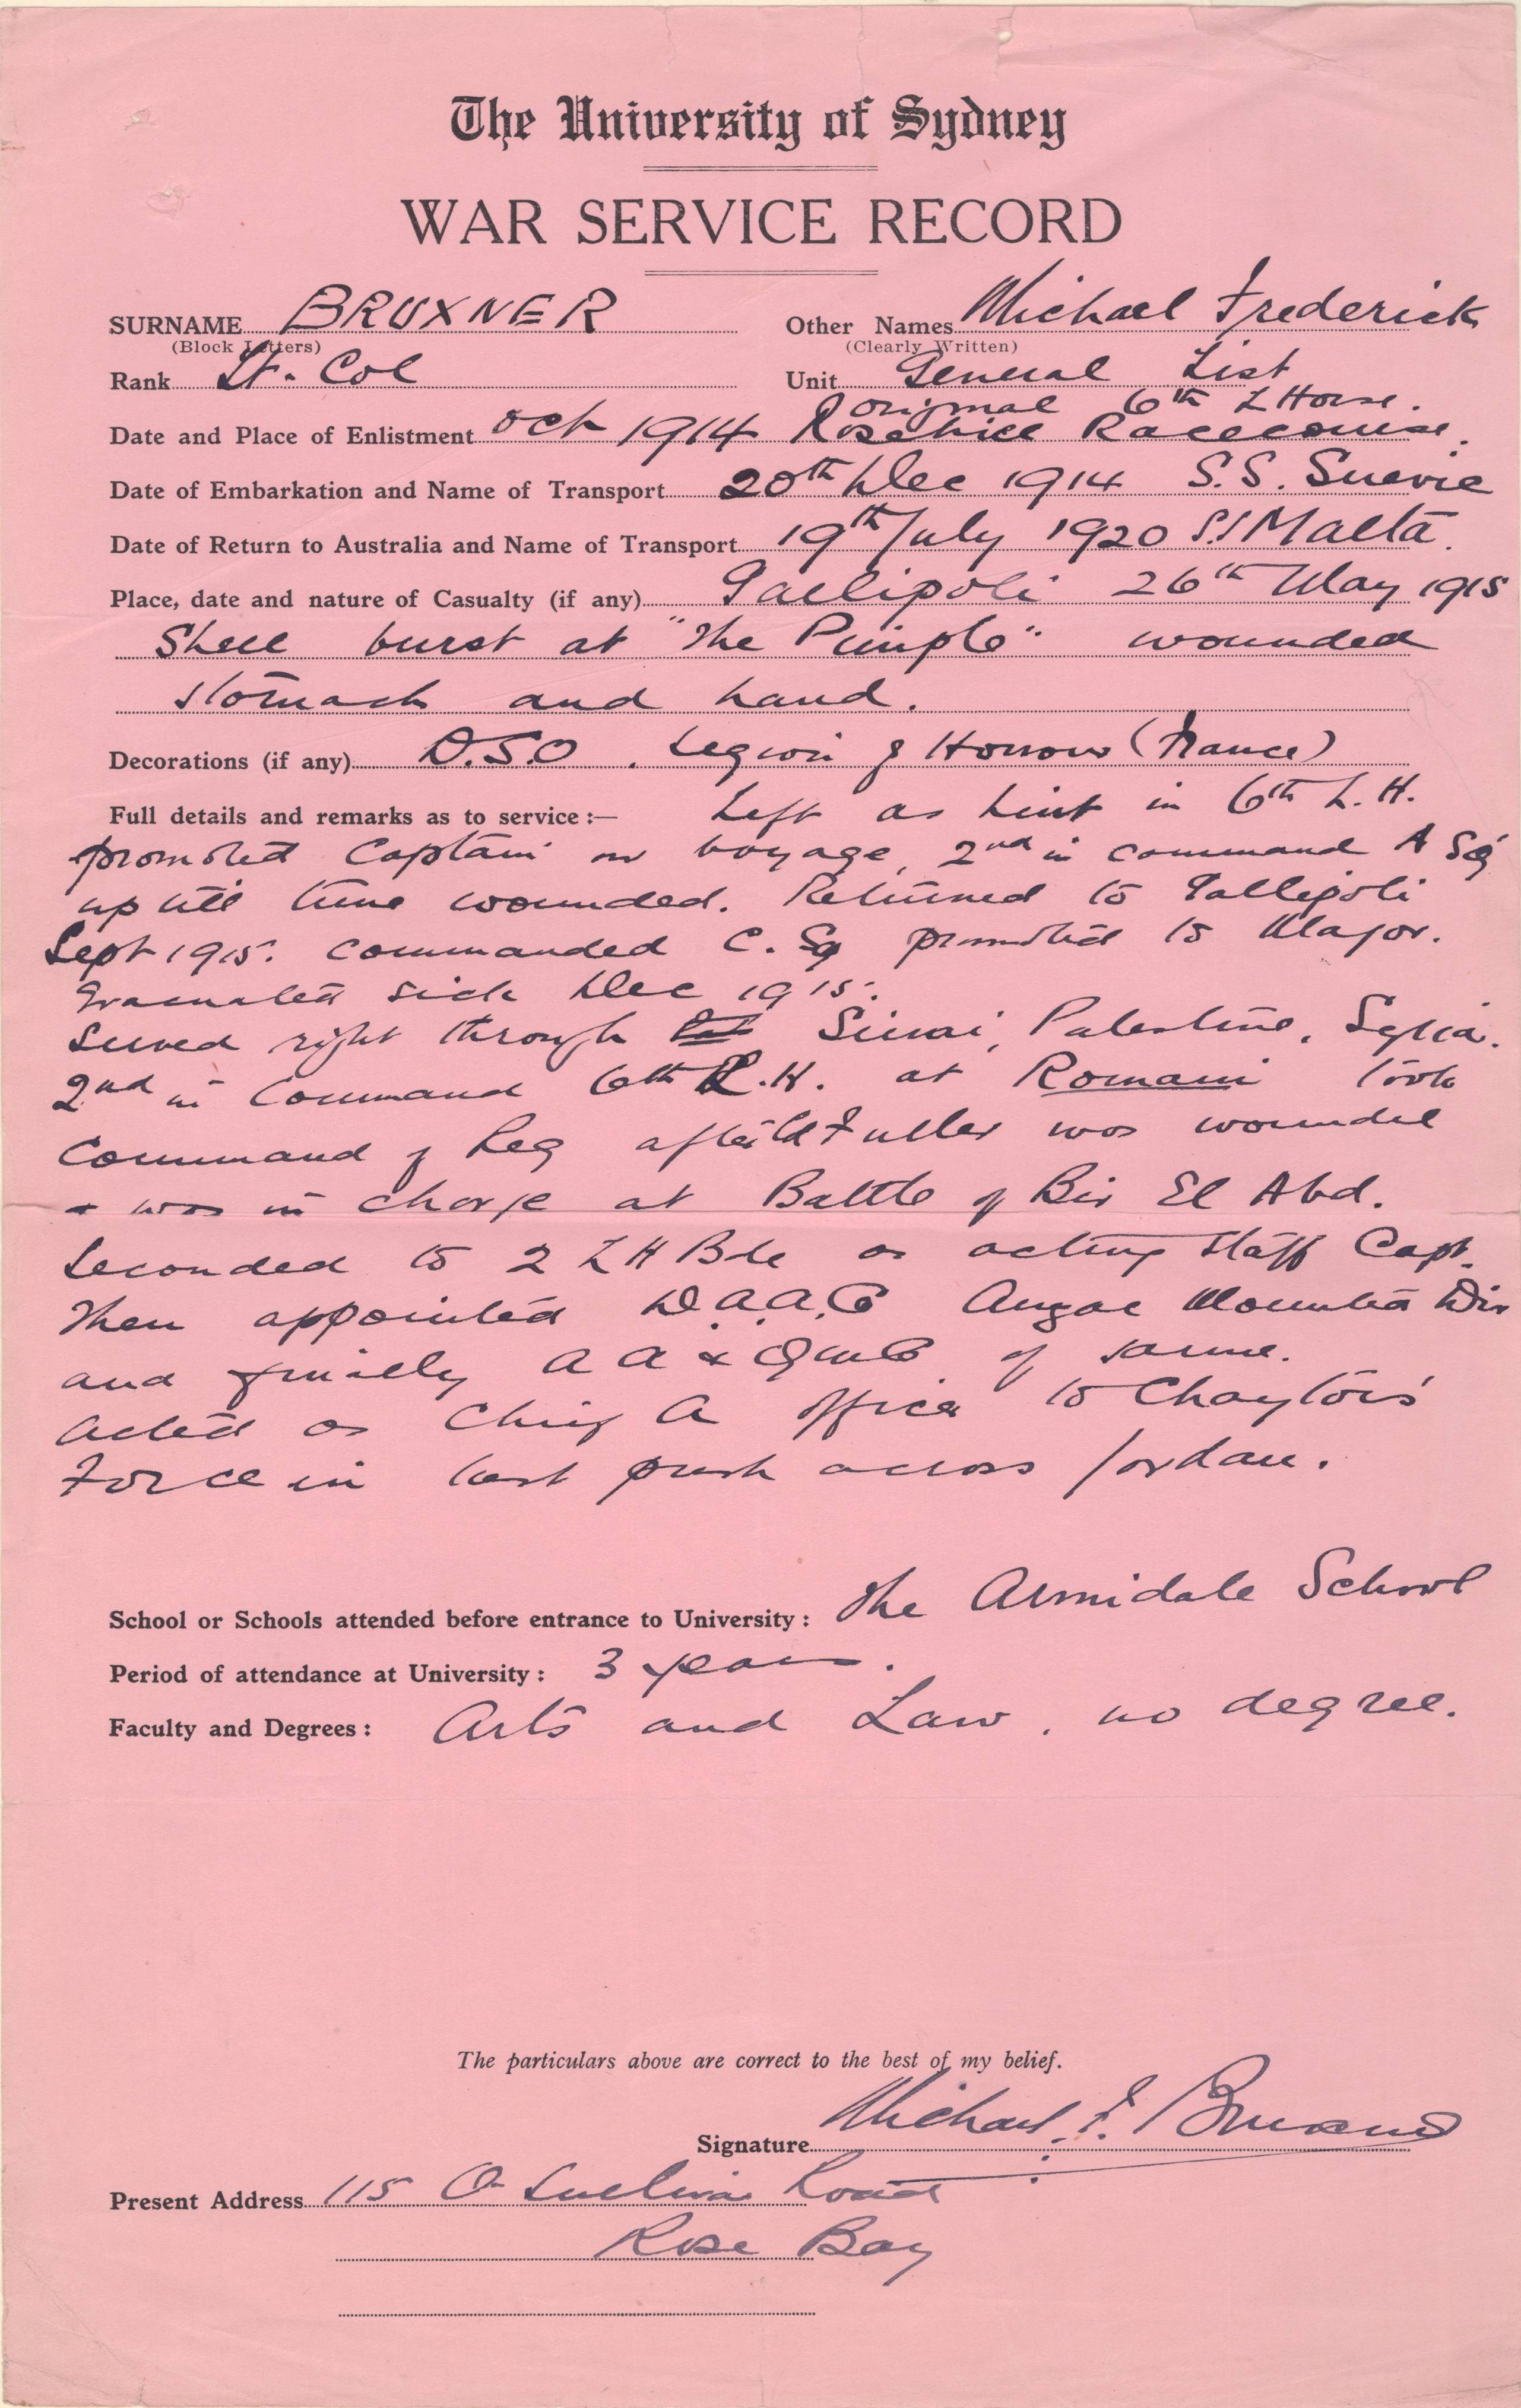 The University of Sydney
WAR SERVICE RECORD
SURNAME BRUXNER Other Names Michael Frederick
(Block Letters) (Clearly Written)
Rank Lt. Col Unit General List
original 6th L Horse.
Date and Place of Enlistment Oct 1914 Rosehill Racecourse.
Date of Embarkation and Name of Transport 20th Dec 1914 S.S. Suevic
Date of Return to Australia and Name of Transport 19th July 1920 SS Malta.
Place, date and nature of Casualty (if any) Gallipoli 26th May 1915
Shell burst at "The Pimple" wounded
stomach and hand.
Decorations (if any) D.S.O. Legion of Honour (France)
Full details and remarks as to service :— Left as Lieut in 6th L. H.
promoted Captain on voyage, 2nd in command A Sq
up till time wounded. Returned to Gallipoli
Sept 1915. Commanded C. Sq promoted to Major.
Evacuated sick Dec 1915.
Served right through Sinai, Palestine, Syria.
2nd in Command 6th L.H. at Romani took
Command of Reg after Lt Fuller was wounded
& was in charge at Battle of Bir El Abd.
Seconded to 2 L H Bde as acting Staff Capt.
Then appointed D.A.A.G Anzac Mounted Div
and finally A A & QMG of same.
Acted as Chief A officer to Chaytor's
Force in last push across Jordan.
School or Schools attended before entrance to University : The Armidale School
Period of attendance at University : 3 years.
Faculty and Degrees : Arts and Law, no degree.
The particulars above are correct to the best of my belief.
Signature Michael F. Bruxner
Present Address 115 O'Sullivan Road
Rose Bay